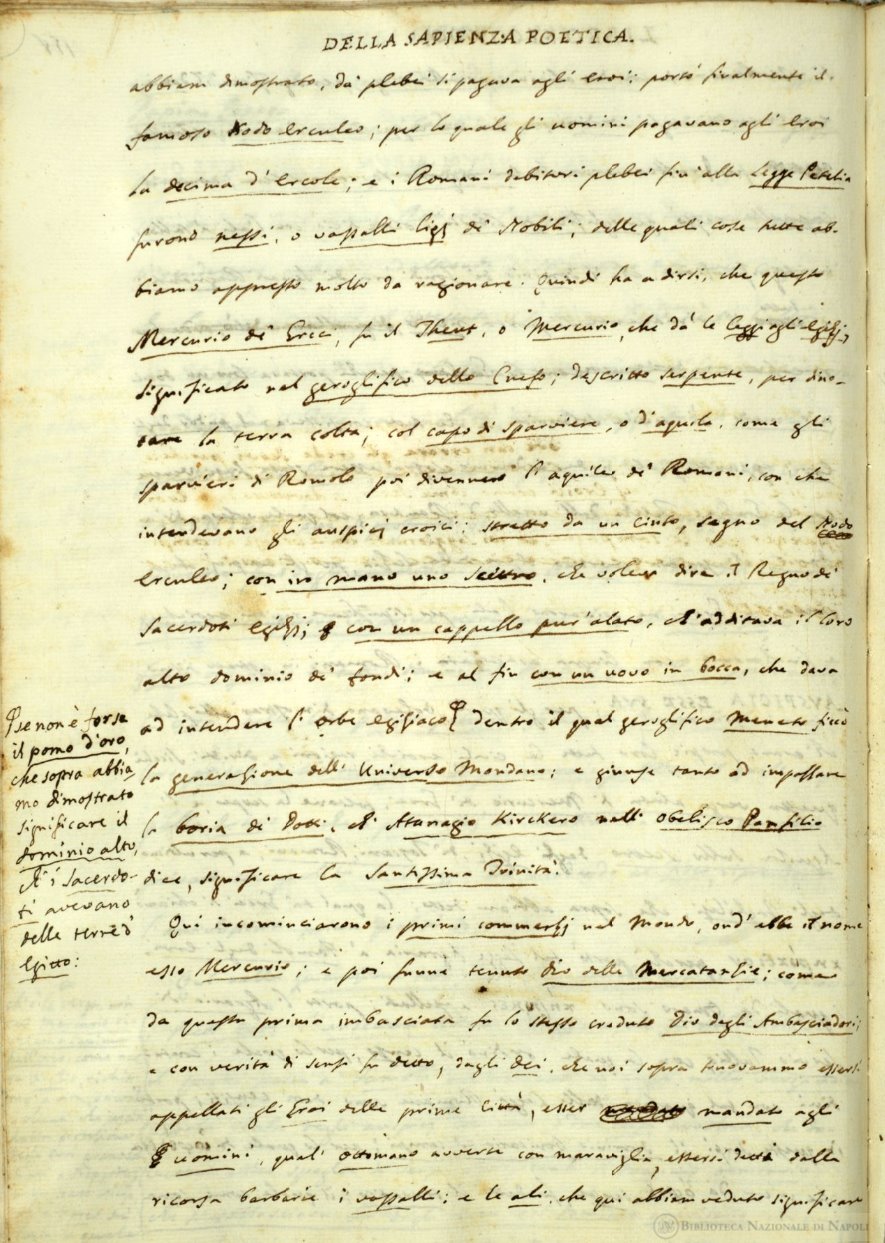 DELLA SAPIENZA POETICA.
abbiam dimostrato, da' plebei si pagava agli eroi: portò finalmente il
famoso Nodo erculeo; per lo quale gli uomini pagavano agli eroi
la decima d'Ercole; e i Romani debitori plebei fin'alla Legge Petelia
furono nessi, o vassalli ligj de' Nobili; delle quali cose tutte ab-
biamo appresso molto da ragionare. Quindi ha a dirsi, che questo
Mercurio de' Greci, fu il Theut, o Mercurio, che dà le leggi agli egizj,
significato nel geroglifico dello Cnefo; descritto serpente, per dino-
tare la terra colta; col capo di sparviere, o d'aquila, come gli
sparvieri di Romolo poi divennero l'aquile de' Romani, con che
intendevano gli auspicj eroici: stretto da un cinto, segno del Nodo
erculeo; con in mano uno scettro, che voleva dire il Regno de'
Sacerdoti egizj; con un cappello pur'alato, ch'additava il loro
alto dominio de' fondi; e al fin con un uovo in bocca, che dava
ad intendere l'orbe egiziaco dentro il qual geroglifico Maneto ficcò
la generazione dell'Universo Mondano; e giunse tanto ad impazzare
la boria de' Dotti, ch'Atanagio Kirckero nell'Obelisco Panfilio
dice, significare la Santissima Trinità.
Qui incominciarono i primi commerzj nel Mondo, ond'ebbe il nome
esso Mercurio; e poi funne tenuto Dio delle Mercatanzie; come
da questa prima imbasciata fu lo stesso creduto Dio degli Ambasciadori;
e con verità di sensi fu detto, dagli dei, che noi sopra truovammo essersi
appellati gli Eroi delle prime città, esser mandato agli
uomini, qual' Ottomano avverte con maraviglia, essersi detti dalla
ricorsa barbarie i vassalli; e le ali, che qui abbiam veduto significare
se non è forse
il pomo d'oro,
che sopra abbia-
mo dimostrato
significare il
dominio alto,
ch'i Sacerdo-
ti avevano
delle terre d'
Egitto:
BIBLIOTECA NAZIONALE DI NAPOLI